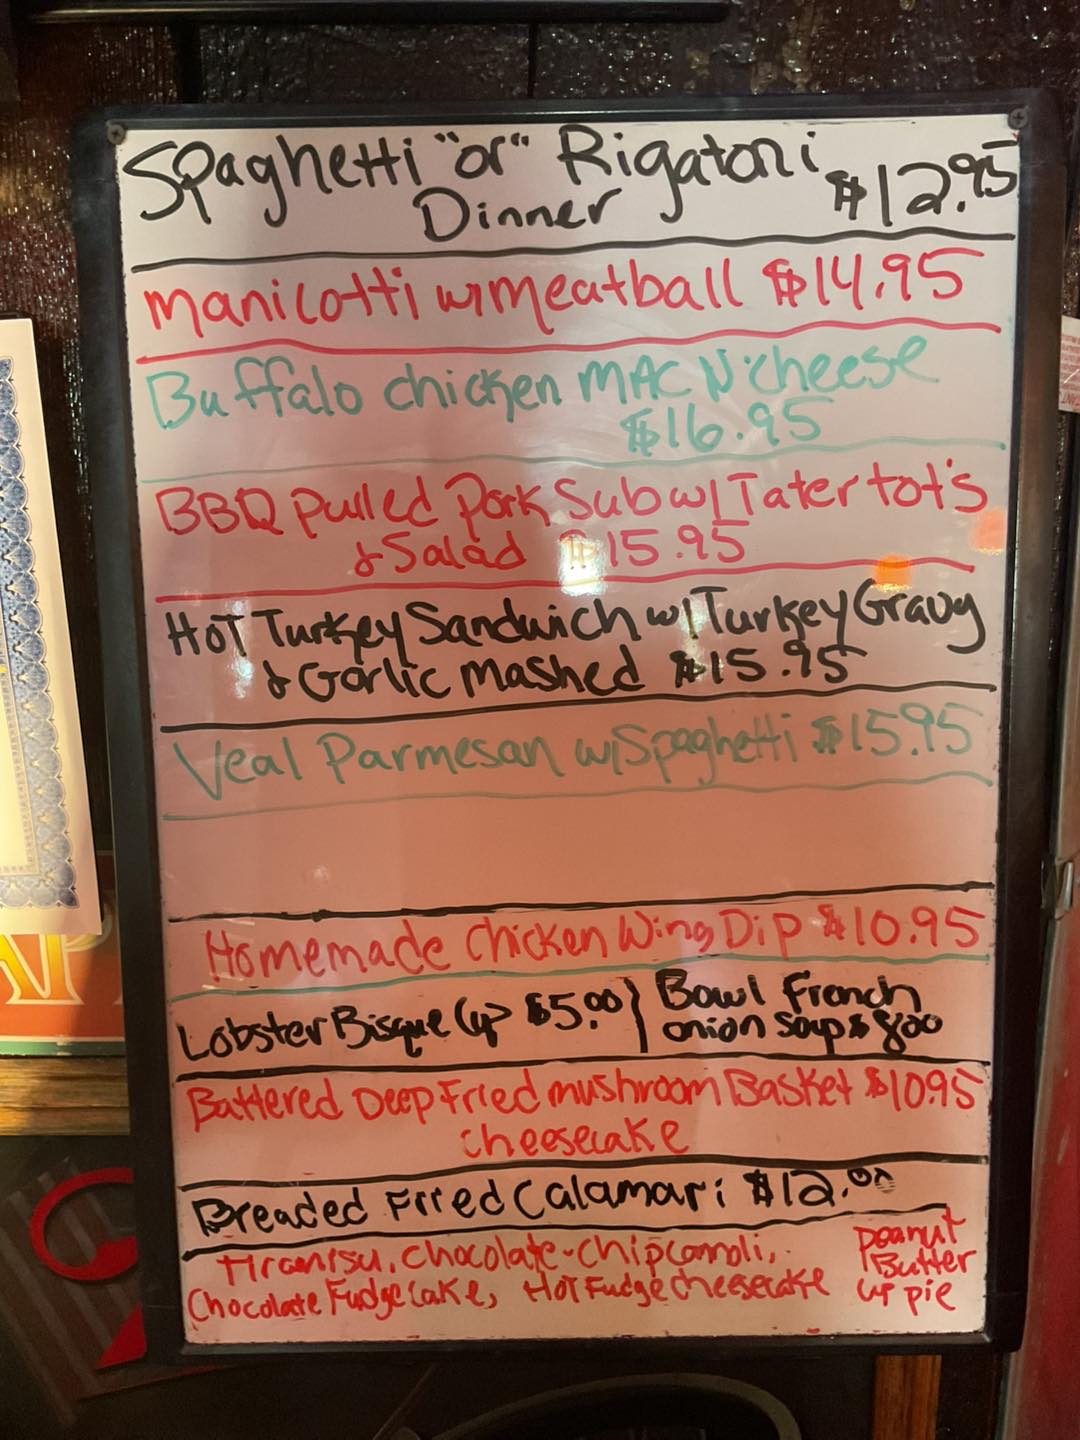 Spaghetti "or" Rigatoni
Dinner $12.95
Manicotti w/meatball $14.95
Buffalo chicken MAC N' cheese
$16.95
BBQ Pulled Pork Sub w/ Tater tot's
& Salad $15.95
Hot Turkey Sandwich w/ Turkey Gravy
& Garlic Mashed $15.95
Veal Parmesan w/Spaghetti $15.95
Homemade Chicken Wing Dip $10.95
Lobster Bisque Cup $5.00
Bowl French
onion soup $ 800
Battered Deep Fried mushroom Basket $10.95
cheesecake
Breaded Fried Calamari $12.00
Tiramisu, Chocolate-Chip Cannoli,
Chocolate Fudge Cake, Hot Fudge Cheesecake
Peanut
Butter
cup pie